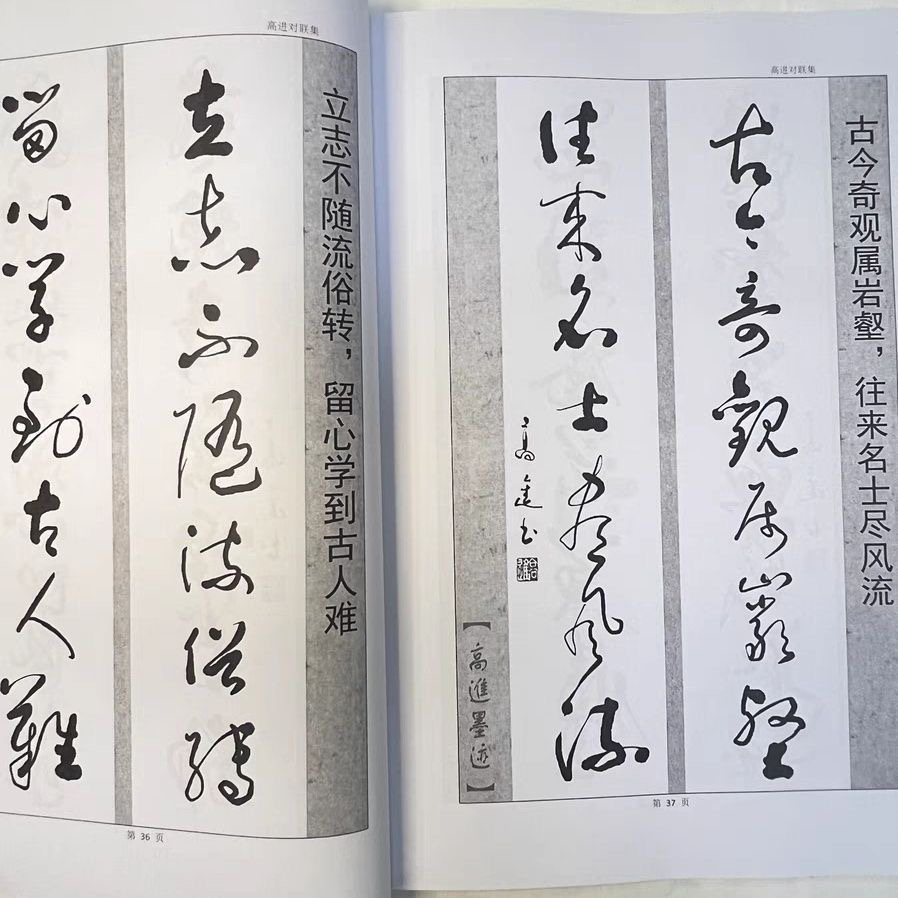 高进对联集
立志不随流俗转，留心学到古人难
立志不随流俗转
留心学到古人難
第 36 页
高进对联集
古今奇观属岩壑，往来名士尽风流
古今奇觀属巖壑
往来名士尽风流
高進书
【高進墨迹】
第 37 页